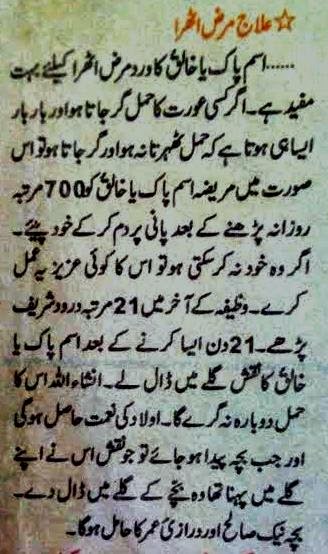 ☆ علاج مرض اٹھرا
......اسم پاک یا خالقُ کا ورد مرض اٹھرا کیلئے بہت
مفید ہے۔ اگر کسی عورت کا حمل گر جاتا ہو اور بار بار
ایسا ہی ہوتا ہے کہ حمل ٹھہرتا نہ ہو اور گر جاتا ہو تو اس
صورت میں مریضہ اسم پاک یا خالقُ کو 700 مرتبہ
روزانہ پڑھنے کے بعد پانی پر دم کر کے خود پیئے۔
اگر وہ خود نہ کر سکتی ہو تو اس کا کوئی عزیز یہ عمل
کرے۔ وظیفہ کے آخر میں 21 مرتبہ درود شریف
پڑھے۔ 21 دن ایسا کرنے کے بعد اسم پاک یا
خالقُ کا نقش گلے میں ڈال لے۔ انشاء اللہ اس کا
حمل دوبارہ نہ گرے گا۔ اولاد کی نعمت حاصل ہوگی
اور جب بچہ پیدا ہو جائے تو جو نقش اس نے اپنے
گلے میں پہنا تھا وہ بچے کے گلے میں ڈال دے۔
بچہ نیک صالح اور درازئ عمر کا حامل ہوگا۔